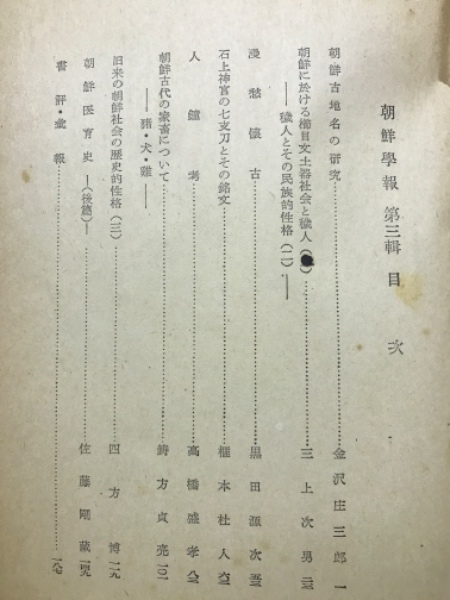 朝鮮學報 第三輯 目次
朝鮮古地名の研究……金沢庄三郎 一
朝鮮に於ける櫛目文土器社会と穢人……三上次男
――穢人とその民族的性格(二)――
漫愁懐古……黒田源次
石上神宮の七支刀とその銘文……榧本杜人
人鑪考……高橋盛孝
朝鮮古代の家畜について……鋳方貞亮
――豬・犬・雞――
旧来の朝鮮社会の歴史的性格(三)……四方博
朝鮮医育史―(後篇)―……佐藤剛蔵
書評・彙報……